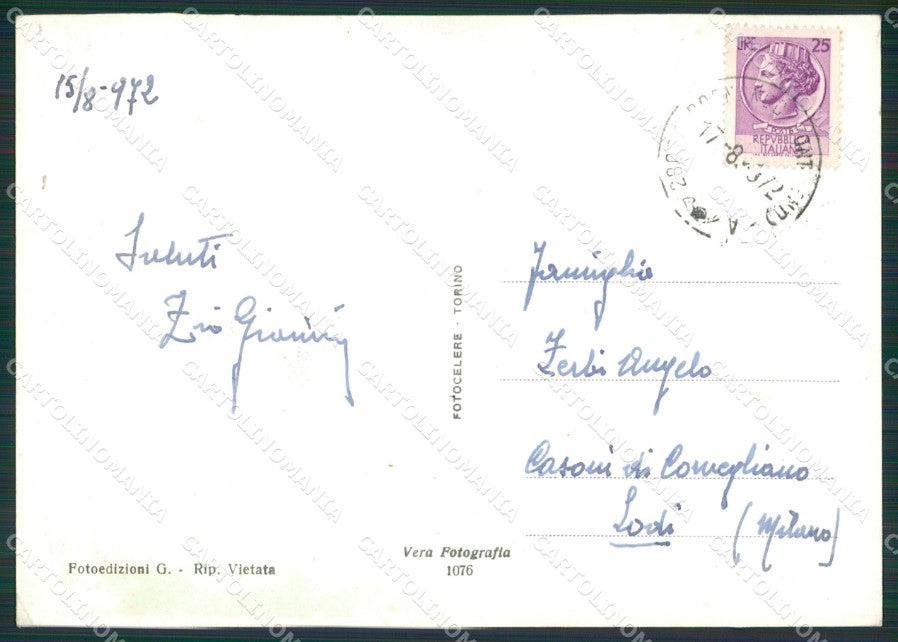 15/8-972
LIRE 25
POSTE
REPVBBLICA
ITALIANA
17-8-972
Saluti
Zio Gianni
FOTOCELERE - TORINO
Famiglia
Zerbi Angelo
Casoni di Cornegliano
Lodi (Milano)
Fotoedizioni G. - Rip. Vietata
Vera Fotografia
1076
CARTOLINOMANIA